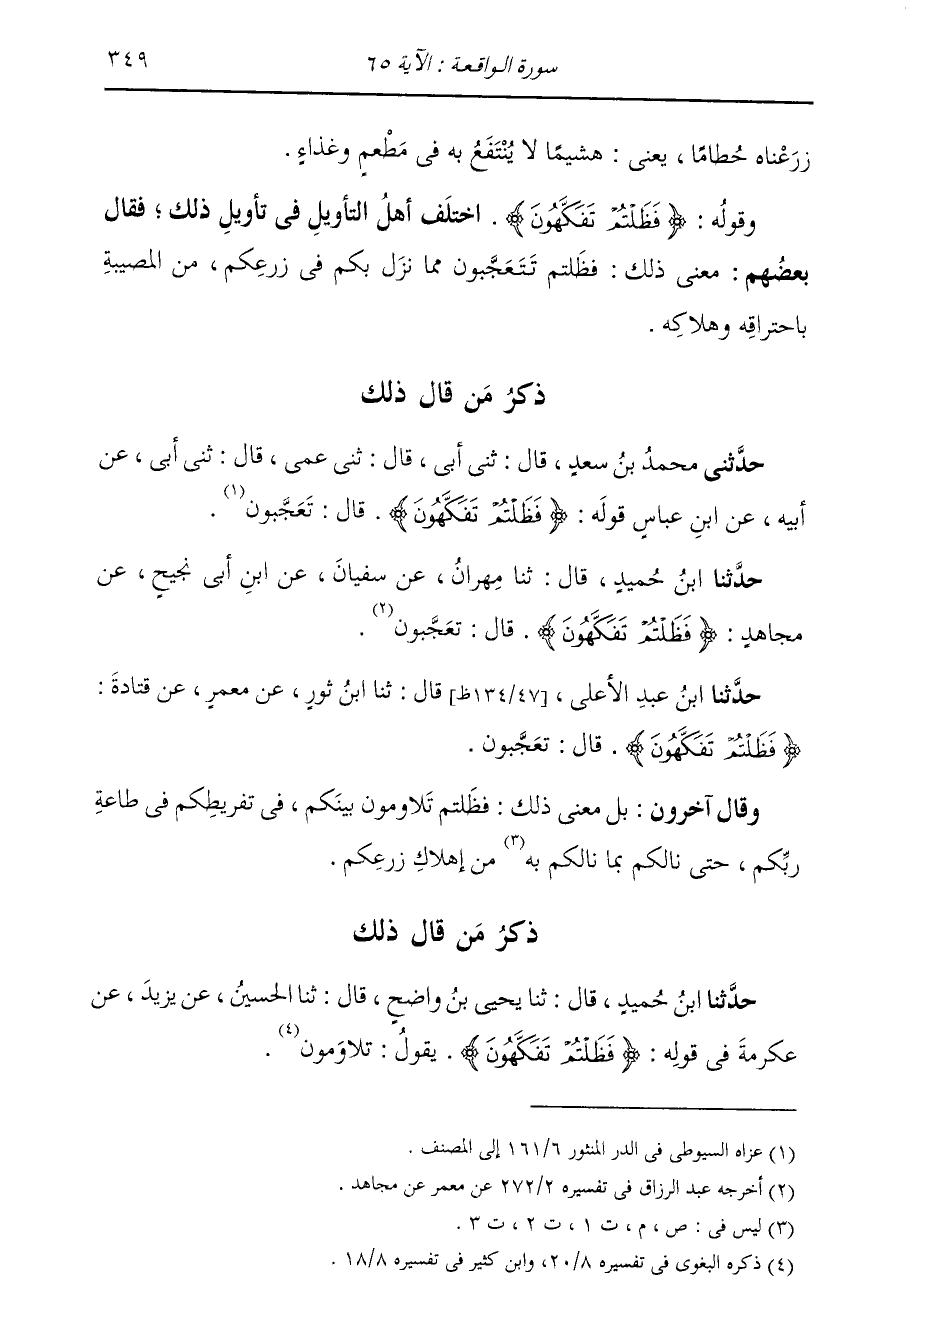 سورة الواقعة : الآية ٦٥
٣٤٩
زرَعْناه حُطامًا ، يعنى : هشيمًا لا يُنْتَفَعُ به فى مَطْعمٍ وغذاءٍ .
وقولُه : ﴿ فَظَلْتُمْ تَفَكَّهُونَ ﴾ . اختلَف أهلُ التأويلِ فى تأويلِ ذلك ؛ فقال
بعضُهم : معنى ذلك : فظَلتم تَتَعَجَّبون مما نزَل بكم فى زرعِكم ، من المصيبةِ
باحتراقِه وهلاكِه .
ذكرُ مَن قال ذلك
حدَّثنى محمدُ بنُ سعدٍ ، قال : ثنى أبى ، قال : ثنى عمى ، قال : ثنى أبى ، عن
أبيه ، عن ابنِ عباسٍ قولَه : ﴿ فَظَلْتُمْ تَفَكَّهُونَ ﴾ . قال : تَعَجَّبون(١) .
حدَّثنا ابنُ حُميدٍ ، قال : ثنا مِهرانُ ، عن سفيانَ ، عن ابنِ أبى نجيحٍ ، عن
مجاهدٍ : ﴿ فَظَلْتُمْ تَفَكَّهُونَ ﴾ . قال : تعَجَّبون(٢) .
حدَّثنا ابنُ عبدِ الأعلى ، [١٣٤/٤٧ظ] قال : ثنا ابنُ ثورٍ ، عن معمرٍ ، عن قتادةَ :
﴿ فَظَلْتُمْ تَفَكَّهُونَ ﴾ . قال : تعَجَّبون .
وقال آخرون : بل معنى ذلك : فظَلتم تَلاومون بينَكم ، فى تفريطِكم فى طاعةِ
ربِّكم ، حتى نالكم بما نالكم به(٣) من إهلاكِ زرعِكم .
ذكرُ مَن قال ذلك
حدَّثنا ابنُ حُميدٍ ، قال : ثنا يحيى بنُ واضحٍ ، قال : ثنا الحسينُ ، عن يزيدَ ، عن
عكرمةَ فى قولِه : ﴿ فَظَلْتُمْ تَفَكَّهُونَ ﴾ . يقولُ : تلاوَمون(٤) .
(١) عزاه السيوطى فى الدر المنثور ١٦١/٦ إلى المصنف .
(٢) أخرجه عبد الرزاق فى تفسيره ٢٧٢/٢ عن معمر عن مجاهد .
(٣) ليس فى : ص ، م ، ت ١ ، ت ٢ ، ت ٣ .
(٤) ذكره البغوى فى تفسيره ٢٠/٨، وابن كثير فى تفسيره ١٨/٨ .